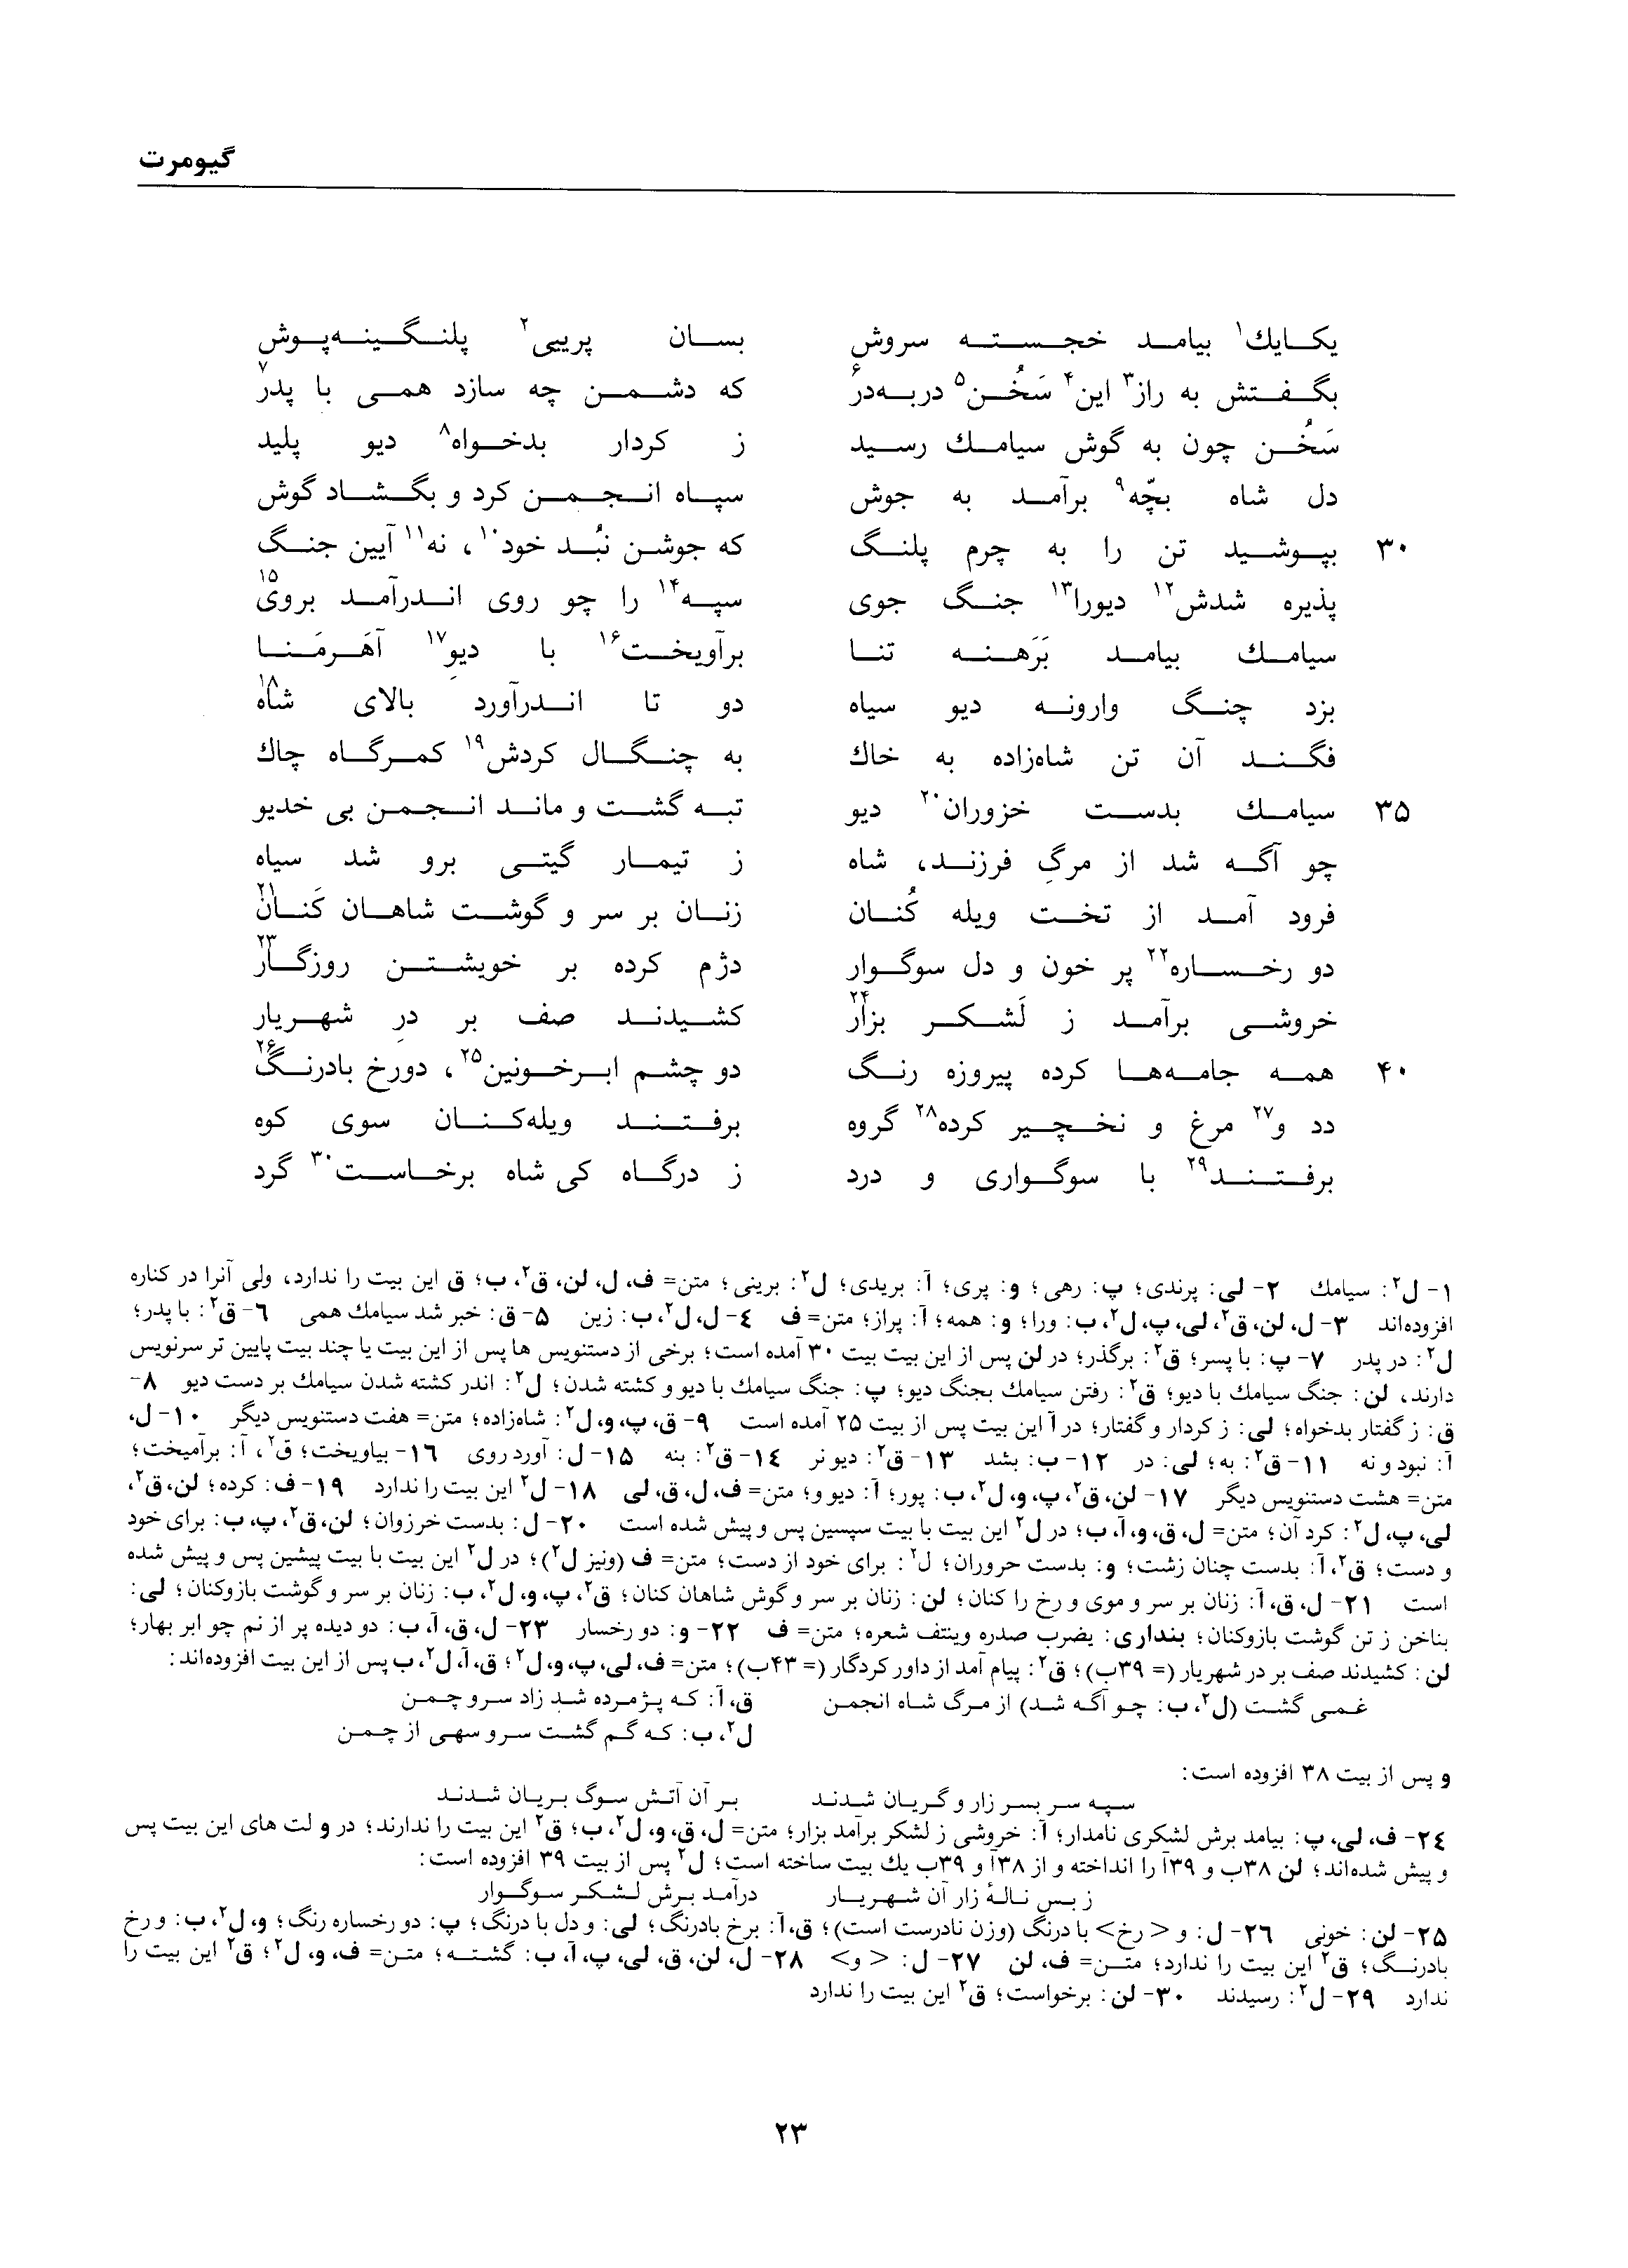 گیومرت
یکایك۱ بیامد خجسته سروش بسان پریی۲ پلنگینه‌پوش
بگفتش به راز۳ این۴ سَخُن۵ دربه‌در۶ که دشمن چه سازد همی با پدر۷
سَخُن چون به گوش سیامك رسید ز کردار بدخواه۸ دیو پلید
دل شاه بچّه۹ برآمد به جوش سپاه انجمن کرد و بگشاد گوش
۳۰ بپوشید تن را به چرم پلنگ که جوشن نبُد خود۱۰، نه۱۱ آیین جنگ
پذیره شدش۱۲ دیورا۱۳ جنگ جوی سپه۱۴ را چو روی اندرآمد بروی۱۵
سیامك بیامد بَرَهنه تنا برآویخت۱۶ با دیوِ۱۷ آهَرمَنا
بزد چنگ وارونه دیو سیاه دو تا اندرآورد بالای شاه۱۸
فگند آن تن شاه‌زاده به خاك به چنگال کردش۱۹ کمرگاه چاك
۳۵ سیامك بدست خزوران۲۰ دیو تبه گشت و ماند انجمن بی خدیو
چو آگه شد از مرگِ فرزند، شاه ز تیمار گیتی برو شد سیاه
فرود آمد از تخت ویله کُنان زنان بر سر و گوشت شاهان کَنان۲۱
دو رخساره۲۲ پر خون و دل سوگوار دژم کرده بر خویشتن روزگار۲۳
خروشی برآمد ز لَشکر بزار۲۴ کشیدند صف بر درِ شهریار
۴۰ همه جامه‌ها کرده پیروزه رنگ دو چشم ابرخونین۲۵، دورخ بادرنگ۲۶
دد و۲۷ مرغ و نخچیر کرده۲۸ گروه برفتند ویله‌کنان سوی کوه
برفتند۲۹ با سوگواری و درد ز درگاه کی شاه برخاست۳۰ گرد
۱- ل۲: سیامك ۲- لی: پرندی؛ پ: رهی؛ و: پری؛ آ: بریدی؛ ل۲: برینی؛ متن= ف، ل، لن، ق۲، ب؛ ق این بیت را ندارد، ولی آنرا در کناره
افزوده‌اند ۳- ل، لن، ق۲، لی، پ، ل۲، ب: ورا؛ و: همه؛ آ: پراز؛ متن= ف ۴- ل، ل۲، ب: زین ۵- ق: خبر شد سیامك همی ۶- ق۲: با پدر؛
ل۲: در پدر ۷- پ: با پسر؛ ق۲: برگذر؛ در لن پس از این بیت بیت ۳۰ آمده است؛ برخی از دستنویس ها پس از این بیت یا چند بیت پایین تر سرنویس
دارند، لن: جنگ سیامك با دیو؛ ق۲: رفتن سیامك بجنگ دیو؛ پ: جنگ سیامك با دیو و کشته شدن؛ ل۲: اندر کشته شدن سیامك بر دست دیو ۸-
ق: ز گفتار بدخواه؛ لی: ز کردار و گفتار؛ در آ این بیت پس از بیت ۲۵ آمده است ۹- ق، پ، و، ل۲: شاه‌زاده؛ متن= هفت دستنویس دیگر ۱۰- ل،
آ: نبود و نه ۱۱- ق۲: به؛ لی: در ۱۲- ب: بشد ۱۳- ق۲: دیو نر ۱۴- ق۲: بنه ۱۵- ل: آورد روی ۱۶- بیاویخت؛ ق۲، آ: برآمیخت؛
متن= هشت دستنویس دیگر ۱۷- لن، ق۲، پ، و، ل۲، ب: پور؛ آ: دیو و؛ متن= ف، ل، ق، لی ۱۸- ل۲ این بیت را ندارد ۱۹- ف: کرده؛ لن، ق۲،
لی، پ، ل۲: کرد آن؛ متن= ل، ق، و، آ، ب؛ در ل۲ این بیت با بیت سپسین پس و پیش شده است ۲۰- ل: بدست خرزوان؛ لن، ق۲، پ، ب: برای خود
و دست؛ ق۲، آ: بدست چنان زشت؛ و: بدست حروران؛ ل۲: برای خود از دست؛ متن= ف (ونیز ل۲)؛ در ل۲ این بیت با بیت پیشین پس و پیش شده
است ۲۱- ل، ق، آ: زنان بر سر و موی و رخ را کنان؛ لن: زنان بر سر و گوش شاهان کنان؛ ق۲، پ، و، ل۲، ب: زنان بر سر و گوشت بازوکنان؛ لی:
بناخن ز تن گوشت بازوکنان؛ بنداری: یضرب صدره وینتف شعره؛ متن= ف ۲۲- و: دو رخسار ۲۳- ل، ق، آ، ب: دو دیده پر از نم چو ابر بهار؛
لن: کشیدند صف بر در شهریار (= ۳۹ب)؛ ق۲: پیام آمد از داور کردگار (= ۴۳ب)؛ متن= ف، لی، پ، و، ل۲؛ ق، آ، ل۲، ب پس از این بیت افزوده‌اند:
غمی گشت (ل۲، ب: چو آگه شد) از مرگ شاه انجمن ق، آ: که پژمرده شد زاد سرو چمن
ل۲، ب: که گم گشت سرو سهی از چمن
و پس از بیت ۳۸ افزوده است:
سپه سر بسر زار و گریان شدند بر آن آتش سوگ بریان شدند
۲۴- ف، لی، پ: بیامد برش لشکری نامدار؛ آ: خروشی ز لشکر برآمد بزار؛ متن= ل، ق، و، ل۲، ب؛ ق۲ این بیت را ندارند؛ در و لت های این بیت پس
و پیش شده‌اند؛ لن ۳۸ب و ۳۹آ را انداخته و از ۳۸آ و ۳۹ب یك بیت ساخته است؛ ل۲ پس از بیت ۳۹ افزوده است:
ز بس نالهٔ زار آن شهریار درآمد برش لشکر سوگوار
۲۵- لن: خونی ۲۶- ل: و < رخ> با درنگ (وزن نادرست است)؛ ق، آ: برخ بادرنگ؛ لی: و دل با درنگ؛ پ: دو رخساره رنگ؛ و، ل۲، ب: و رخ
بادرنگ؛ ق۲ این بیت را ندارد؛ متن= ف، لن ۲۷- ل: < و> ۲۸- ل، لن، ق، لی، پ، آ، ب: گشته؛ متن= ف، و، ل۲؛ ق۲ این بیت را
ندارد ۲۹- ل۲: رسیدند ۳۰- لن: برخواست؛ ق۲ این بیت را ندارد
۲۳